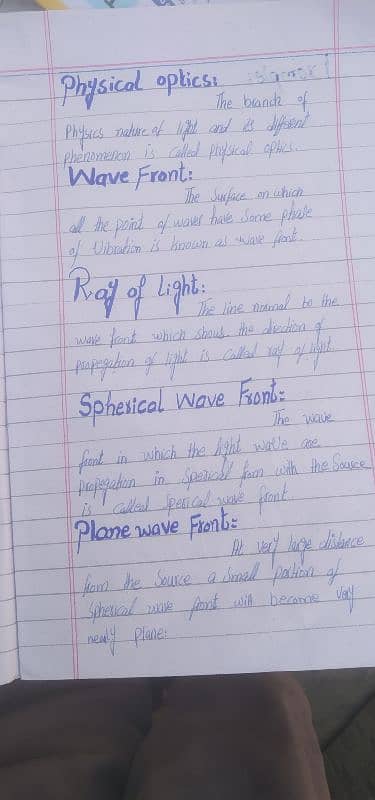 Physical optics:
The branch of
Physics nature of light and its different
phenomenon is called physical optics.
Wave Front:
The Surface on which
all the point of waves have Same phase
of Vibration is known as wave front.
Ray of Light:
The line normal to the
wave front which shows the direction of
propegation of light is called ray of light
Spherical Wave Front:
The wave
front in which the light wave are
propegation in Sperical form with the Source
is calleal Sperical wave front
Plane wave Front:
At very large distance
from the Source a Small portion of
Spherical wave front will become very
nearly plane: